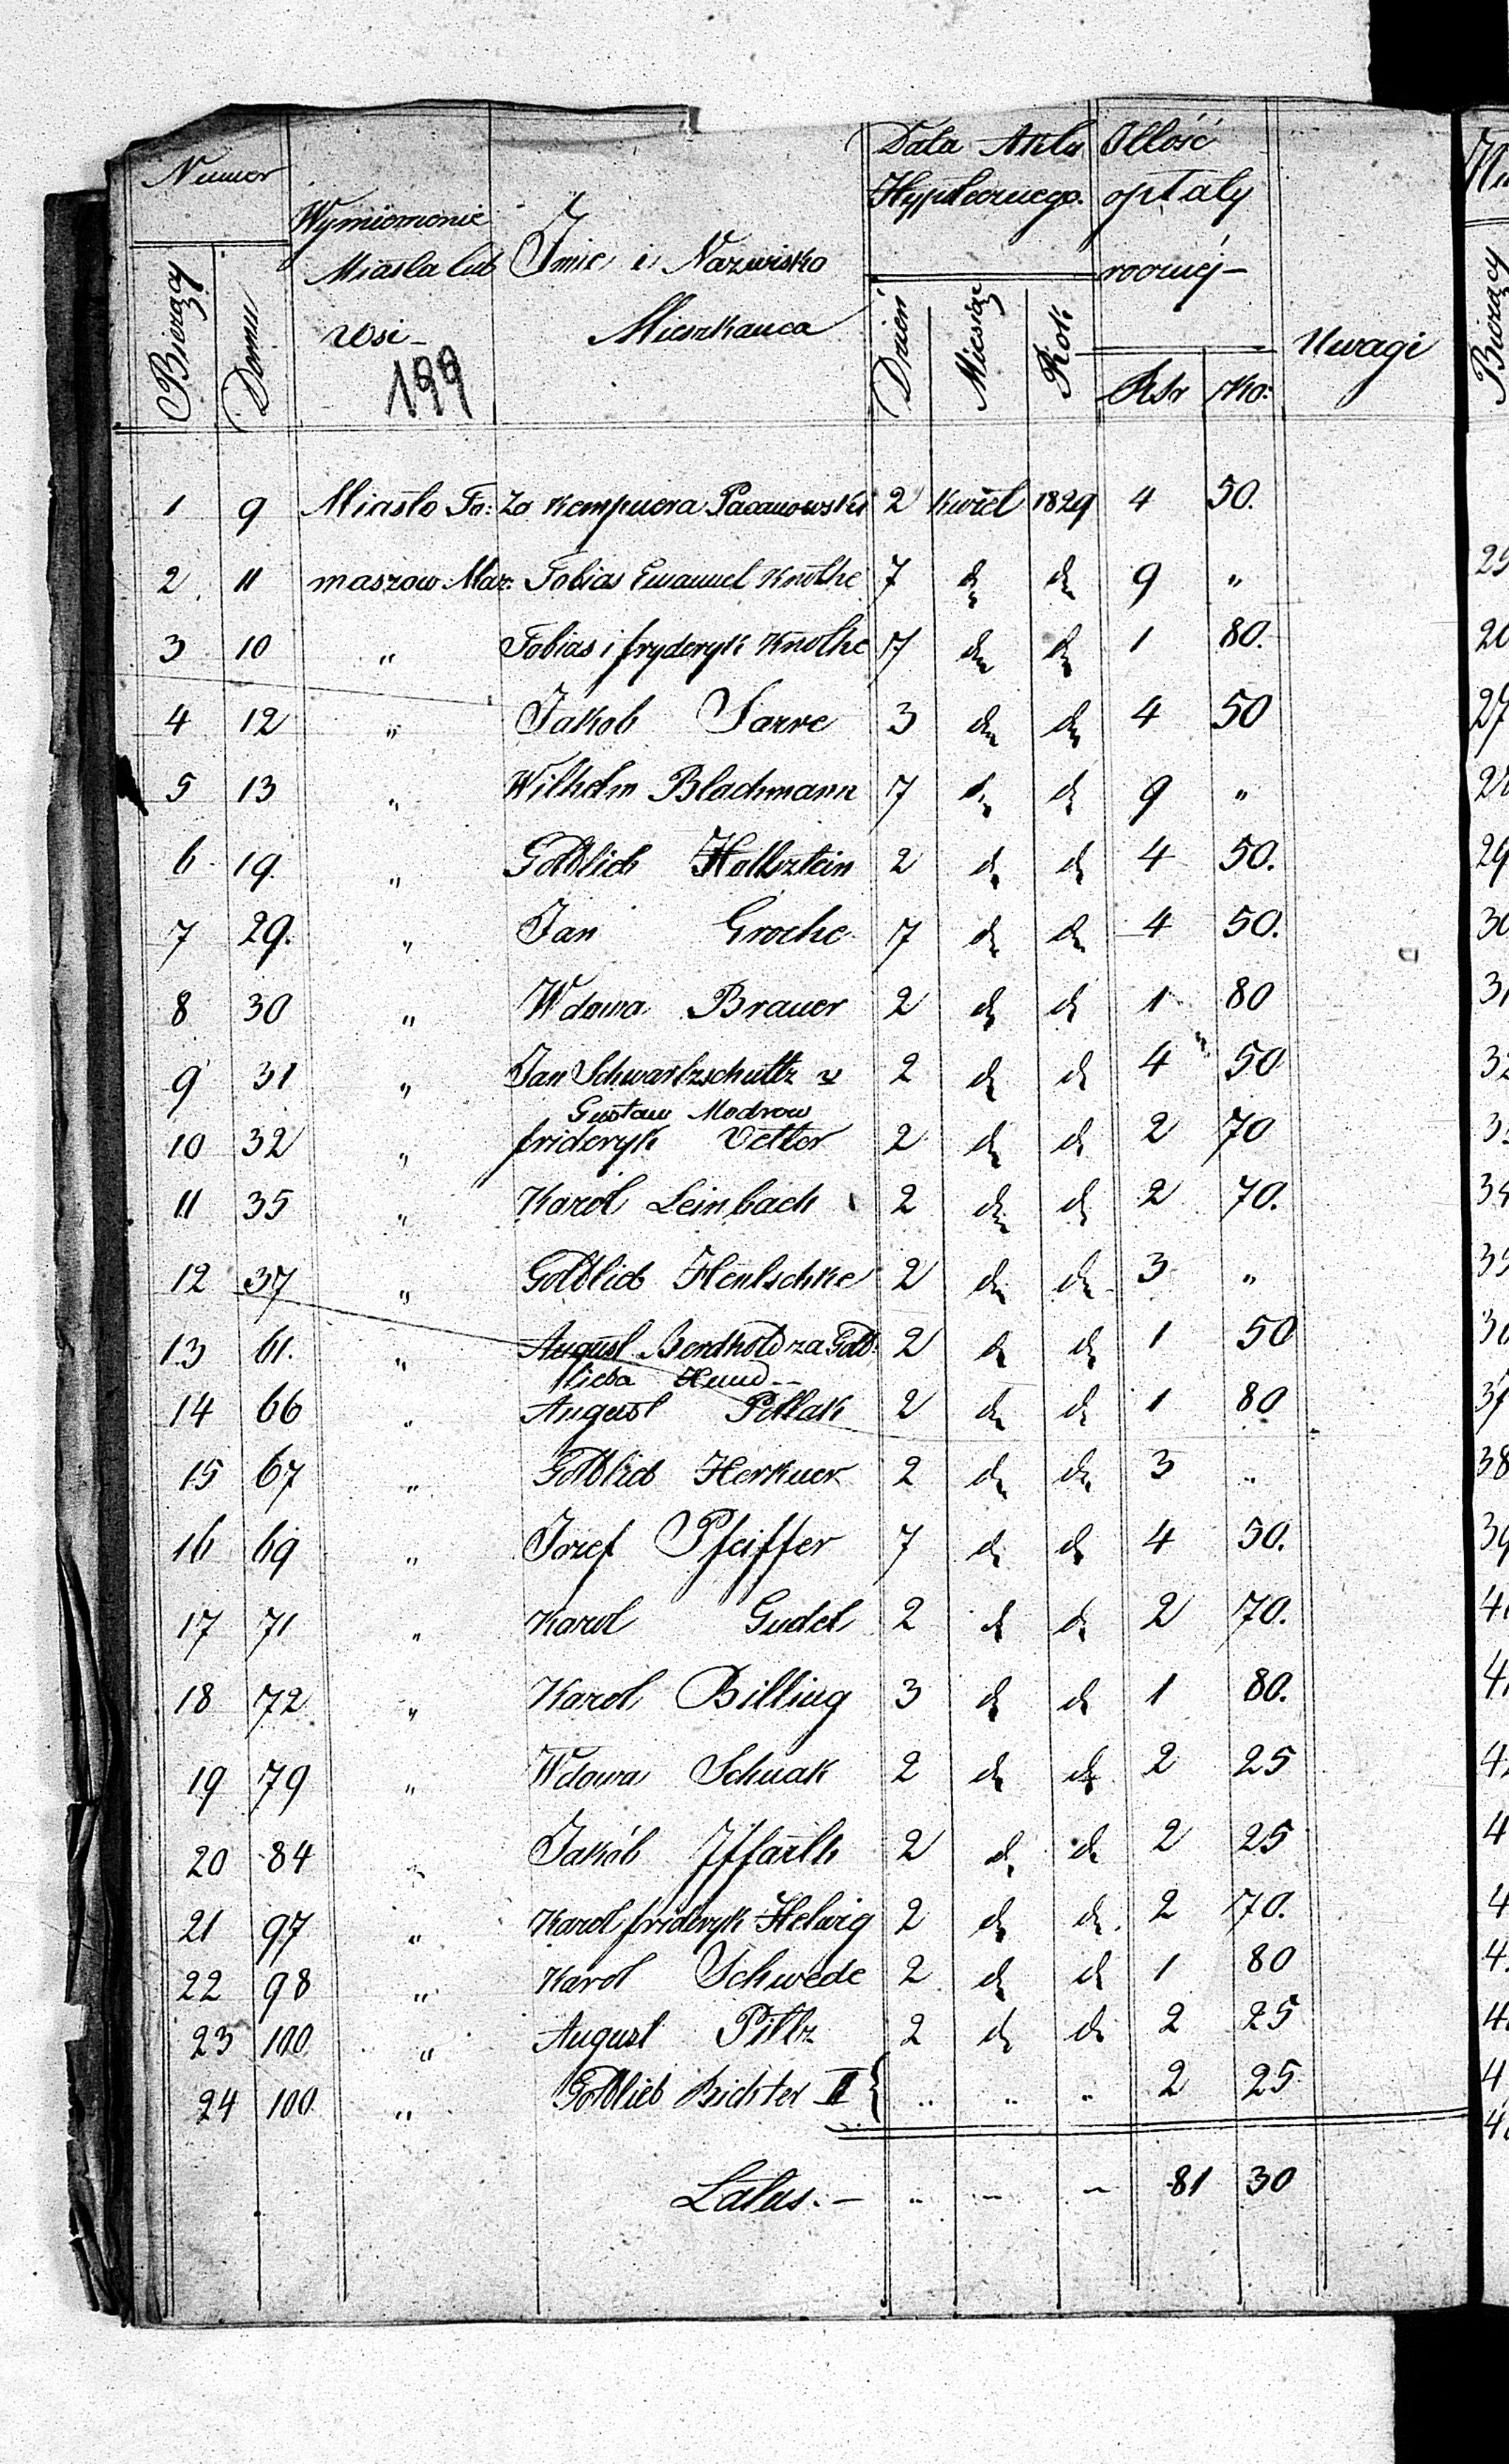 Numer
Bieżący
Domu
Wymienienie
Miasta lub
wsi
199
Imie i Nazwisko
Mieszkańca
Data Aktu
Hypotecznego.
Dzień
Miesiąc
Rok
Illość
opłaty
rocznéj
RSr
Ko:
Uwagi
1 9 Miasto To: Za Kempnera Pacanowski 2 Kwiet 1829 4 50.
2. 11 maszow Maz: Tobias Emanuel Knothe 7 do do 9 "
3 10 " Tobias i fryderyk Knothe 7 do do 1 80.
4 12 " Jakob Sarre 3 do do 4 50
5 13 " Wilhelm Blachmann 7 do do 9 "
6 19. " Gottlieb Holbsztein 2 do do 4 50.
7 29. " Jan Groche 7 do do 4 50.
8 30 " Wdowa Brauer 2 do do 1 80
9 31 " Jan Schwartzschultz 2 do do 4 50
Gustaw Modrow
10 32 " frideryk Vetter 2 do do 2 70
11 35 " Karol Leinbach 2 do do 2 70.
12 37 " Gottlieb Hentschke 2 do do 3 "
13 61. " August Berthold za Gott- 2 do do 1 50
lieba Hund
14 66 " August Pollak 2 do do 1 80
15 67 " Gottlieb Herkner 2 do do 3 "
16 69 " Jozef Pfeiffer 7 do do 4 50.
17 71 " Karol Gudel 2 do do 2 70.
18 72 " Karol Billing 3 do do 1 80.
19 79 " Wdowa Schnak 2 do do 2 25
20 84 " Jakób Iffarth 2 do do 2 25
21 97 " Karol frideryk Helwig 2 do do 2 70.
22 98 " Karol Schwede 2 do do 1 80
23 100 " August Piltz 2 do do 2 25
24 100 " Gottlieb Richter II " " " 2 25
Latus. — " — — 81 30